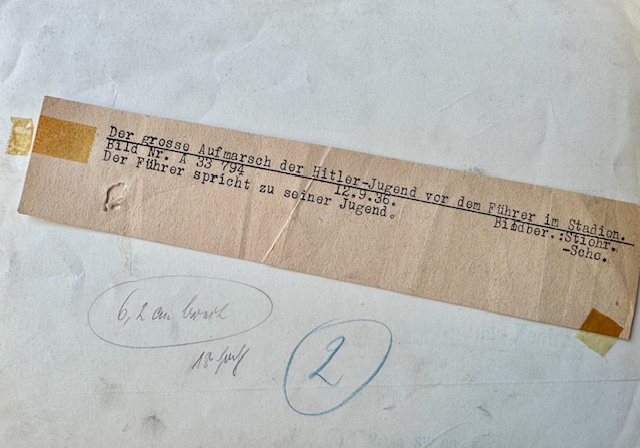 Der grosse Aufmarsch der Hitler-Jugend vor dem Führer im Stadion.
Bild Nr. A 33 794 12.9.36. Bildber.:Stiohr.
Der Führer spricht zu seiner Jugend. -Scho.
6,2 cm breit
2